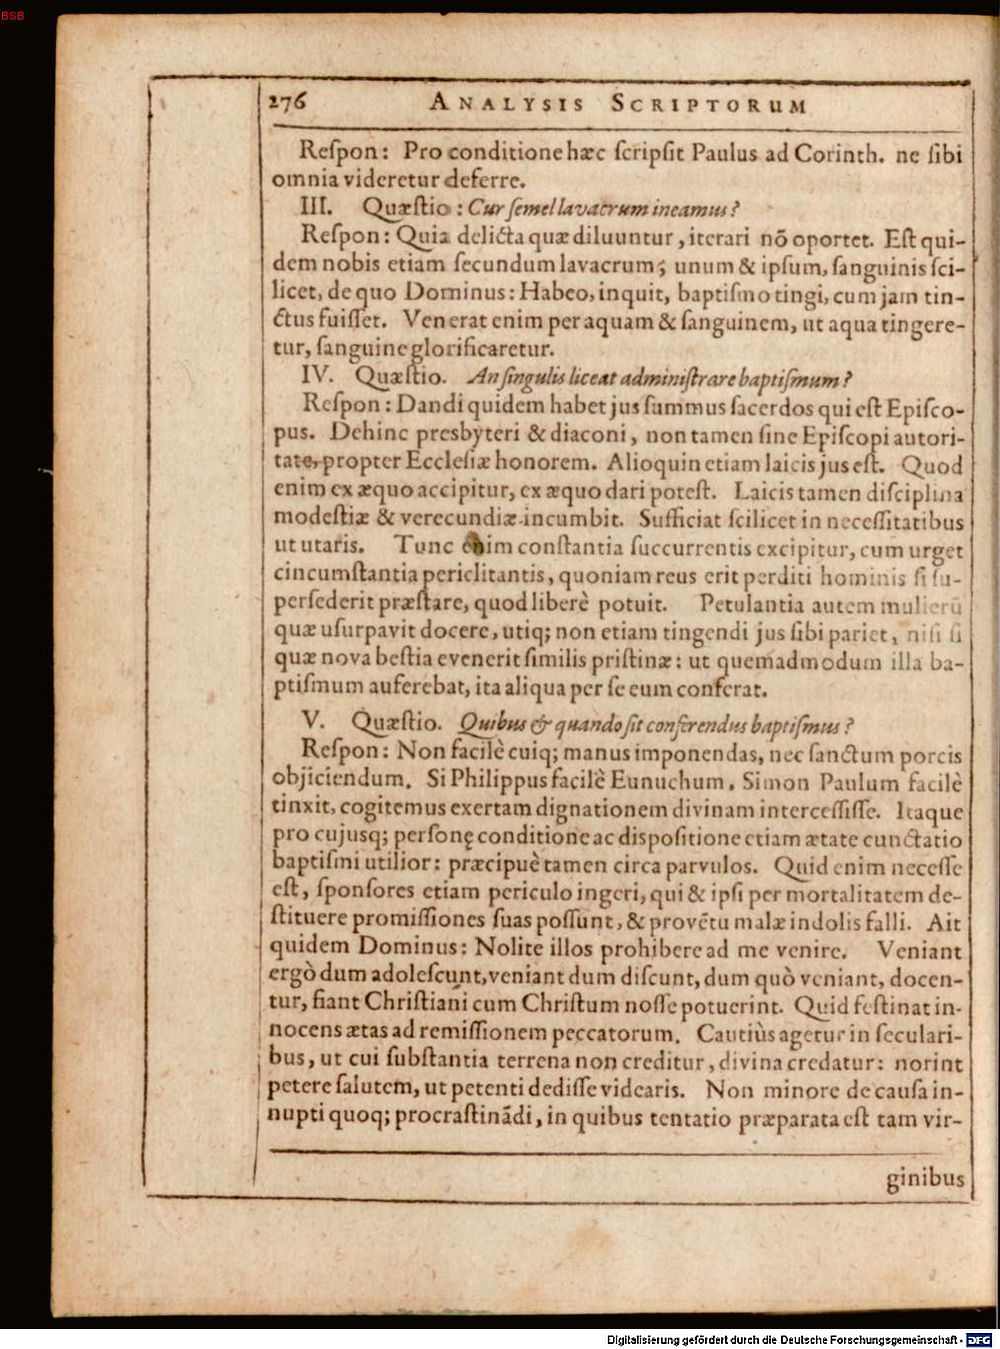 BSB
276 ANALYSIS SCRIPTORUM
Reſpon: Pro conditione hæc ſcripſit Paulus ad Corinth. ne ſibi
omnia videretur deferre.
III. Quæſtio: Cur ſemel lavacrum ineamus?
Reſpon: Quia delicta quæ diluuntur, iterari nõ oportet. Eſt qui-
dem nobis etiam ſecundum lavacrum; unum & ipſum, ſanguinis ſci-
licet, de quo Dominus: Habeo, inquit, baptiſmo tingi, cum jam tin-
ctus fuiſſet. Venerat enim per aquam & ſanguinem, ut aqua tingere-
tur, ſanguine glorificaretur.
IV. Quæſtio. An ſingulis liceat adminiſtrare baptiſmum?
Reſpon: Dandi quidem habet jus ſummus ſacerdos qui eſt Epiſco-
pus. Dehinc presbyteri & diaconi, non tamen ſine Epiſcopi autori-
tate, propter Eccleſiæ honorem. Alioquin etiam laicis jus eſt. Quod
enim ex æquo accipitur, ex æquo dari poteſt. Laicis tamen diſciplina
modeſtiæ & verecundiæ incumbit. Sufficiat ſcilicet in neceſſitatibus
ut utaris. Tunc enim conſtantia ſuccurrentis excipitur, cum urget
cincumſtantia periclitantis, quoniam reus erit perditi hominis ſi ſu-
perſederit præſtare, quod liberè potuit. Petulantia autem mulierũ
quæ uſurpavit docere, utiq; non etiam tingendi jus ſibi pariet, niſi ſi
quæ nova beſtia evenerit ſimilis priſtinæ: ut quemadmodum illa ba-
ptiſmum auferebat, ita aliqua per ſe eum conferat.
V. Quæſtio. Quibus & quando ſit conferendus baptiſmus?
Reſpon: Non facilè cuiq; manus imponendas, nec ſanctum porcis
objiciendum. Si Philippus facilè Eunuchum, Simon Paulum facilè
tinxit, cogitemus exertam dignationem divinam interceſſiſſe. Itaque
pro cujusq; perſonę conditione ac diſpoſitione etiam ætate cunctatio
baptiſmi utilior: præcipuè tamen circa parvulos. Quid enim neceſſe
eſt, ſponſores etiam periculo ingeri, qui & ipſi per mortalitatem de-
ſtituere promiſſiones ſuas poſſunt, & provẽtu malæ indolis falli. Ait
quidem Dominus: Nolite illos prohibere ad me venire. Veniant
ergò dum adoleſcunt, veniant dum diſcunt, dum quò veniant, docen-
tur, fiant Chriſtiani cum Chriſtum noſſe potuerint. Quid feſtinat in-
nocens ætas ad remiſſionem peccatorum. Cautiùs agetur in ſeculari-
bus, ut cui ſubſtantia terrena non creditur, divina credatur: norint
petere ſalutem, ut petenti dediſſe videaris. Non minore de cauſa in-
nupti quoq; procraſtinãdi, in quibus tentatio præparata eſt tam vir-
ginibus
Digitalisierung gefördert durch die Deutsche Forschungsgemeinschaft - DFG